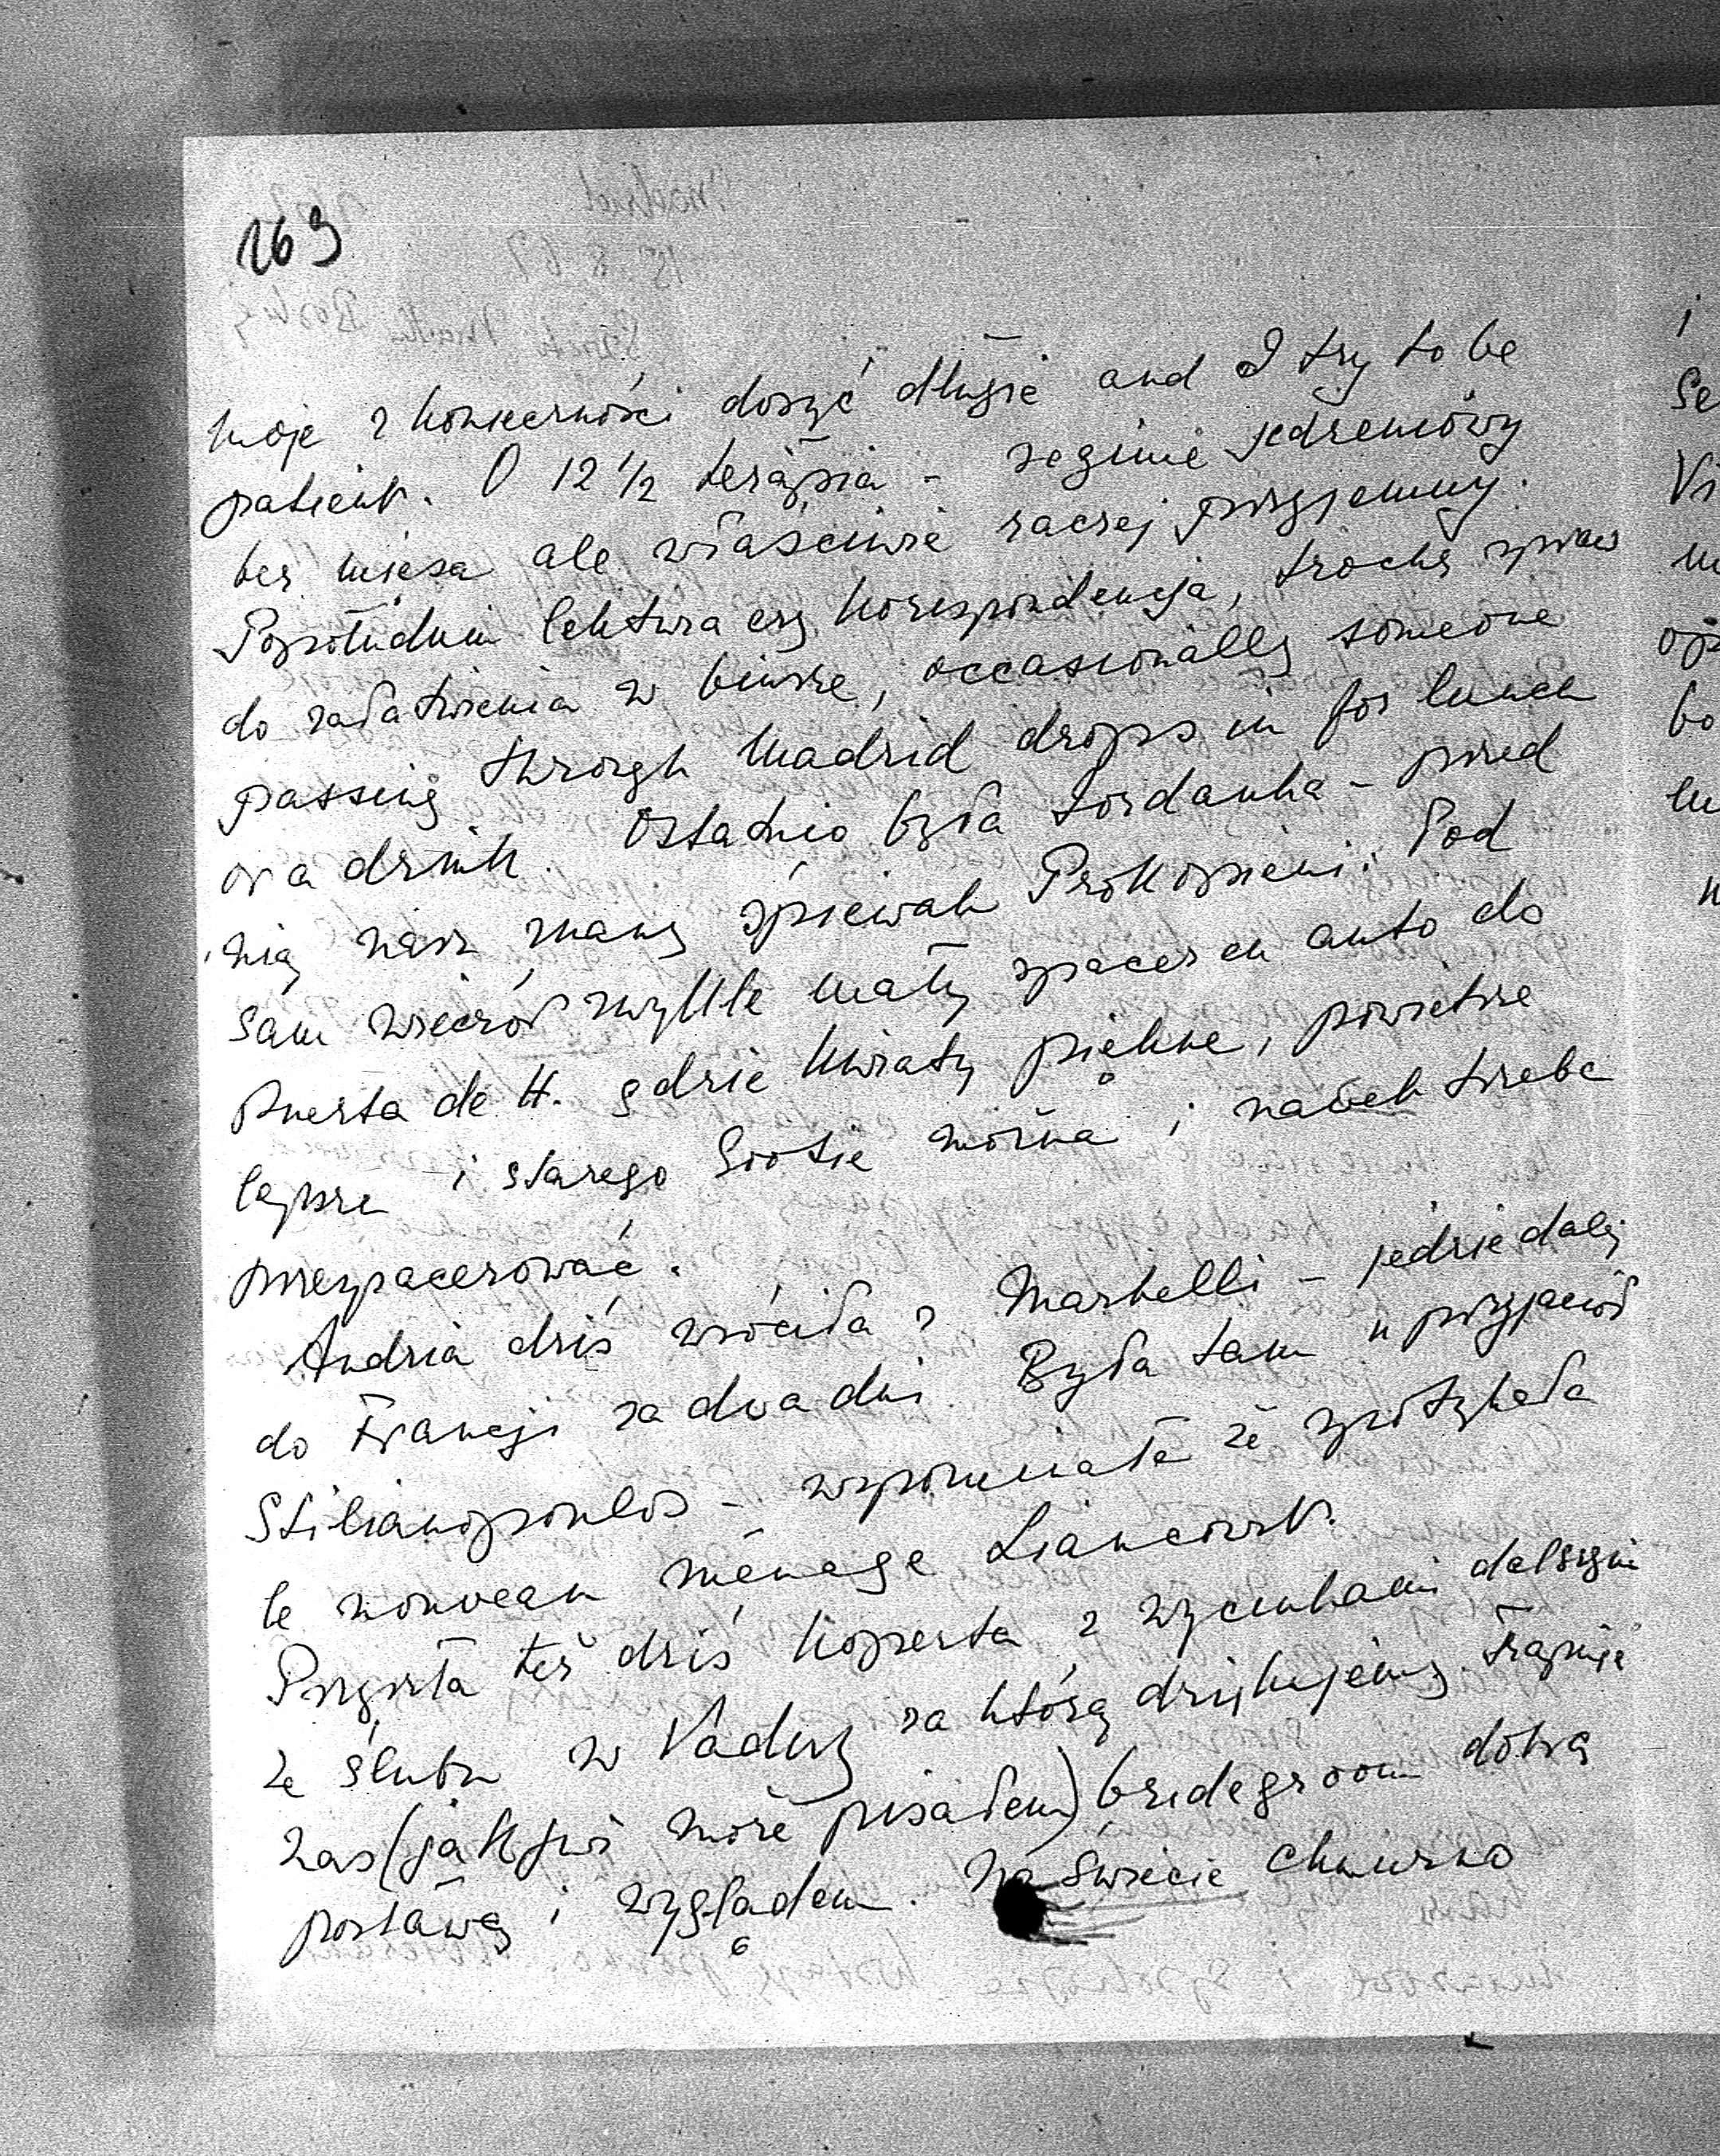 169
moje z konieczności dosyć długie and I try to be
patient. O 12 1/2 terapia - regime jedzeniowy
bez mięsa ale właściwie raczej przyjemny.
Popołudniu lektura czy korespondencja, trochę spraw
do załatwienia w biurze, occasionally someone
passing through Madrid drops in for lunch
or a drink. Ostatnio była Jordanka - przed
nią nasz znany śpiewak Prokopieni. Pod
sam wieczór zwykle mały spacer en auto do
Puerta de H. gdzie kwiaty piękne, powietrze
lepsze i starego Sootie można i nawet trzeba
przespacerować.
Andria dziś wróciła z Marbelli - jedzie dalej
do Francji za dwa dni. Była tam u przyjaciół
Stilianopoulos - wspomniała że spotykała
le nouveau ménage Liancourt.
Przyszła też dziś koperta z wycinkami dalszymi
ze ślubu w Vaduz za którą dziękujemy. Trapi
nas (jak już może pisałem) bridegroom
postawą i wyglądem. Na świecie chmurno